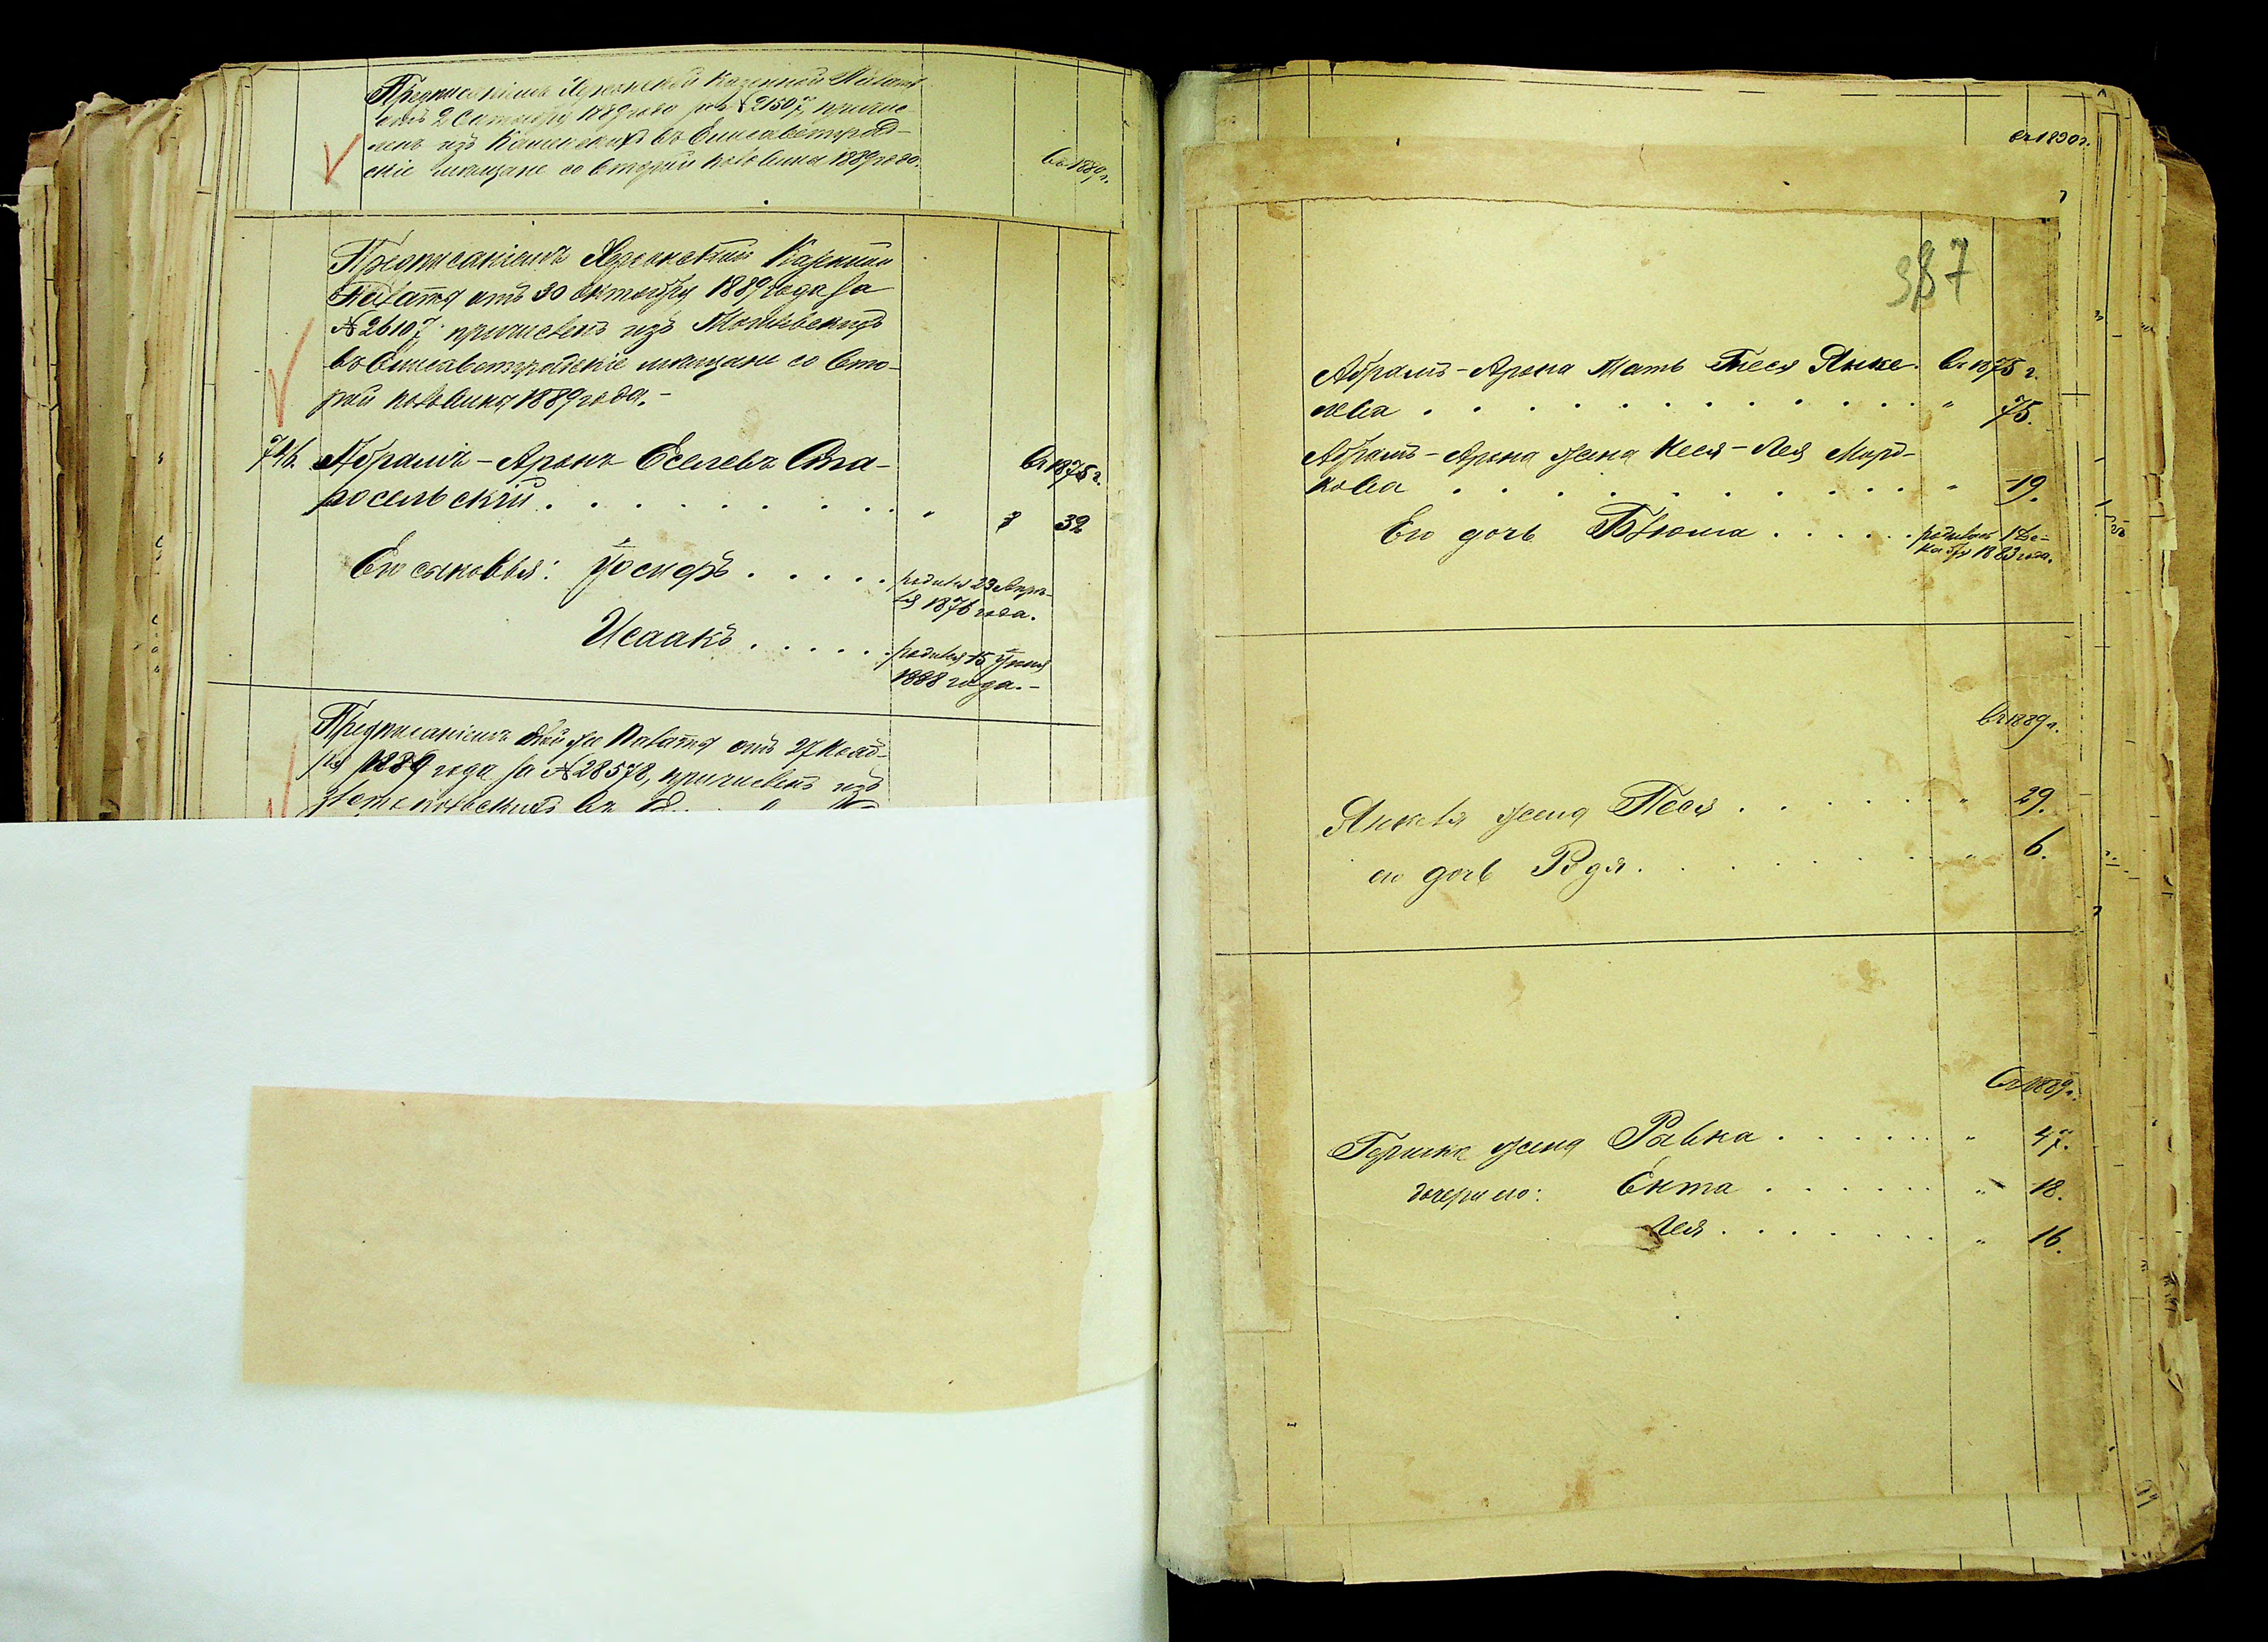 Предписаніемъ Херсонской Казенной Палаты
отъ 2 Октября 1889 года за № 21507, причис-
ленъ изъ въ Елисаветград-
скіе мѣщане со второй половины 1889 года.
въ 1889 г.
Предписаніемъ Херсонской Казенной
Палаты отъ 30 Октября 1889 года за
№ 26107 причисленъ изъ
въ Елисаветградскіе мѣщане со вто-
рой половины 1889 года.-
Абрамъ-Аронъ Еселевъ Ста-
въ 1875 г.
росельскій . . . . . . . . . " 32
Его сыновья: Іосифъ . . . . . родился 23 Апрѣ-
ля 1876 года.
Исаакъ . . . . . родился 15 Іюня
1888 года.-
Предписаніемъ той же Палаты отъ 27 Нояб-
ря 1889 года за № 28578, причисленъ изъ
въ 1890 г.
387
Абрамъ-Арона Мать Песя Янке- въ 1875 г.
лева . . . . . . . . . . " 75.
Абрамъ-Арона жена Неся-Лея Морд-
кова . . . . . . . . . . " 19.
Его дочь Блюма . . . . . родилась 1 Де-
кабря 1883 года.
въ 1889 г.
Янкеля жена Песя . . . . . . " 29.
его дочь Рудя . . . . . . . " 6.
въ 1889 г.
Гершка жена Ривка . . . . . . " 47.
дочери его: Ента . . . . . . " 18.
Лея . . . . . . . " 16.